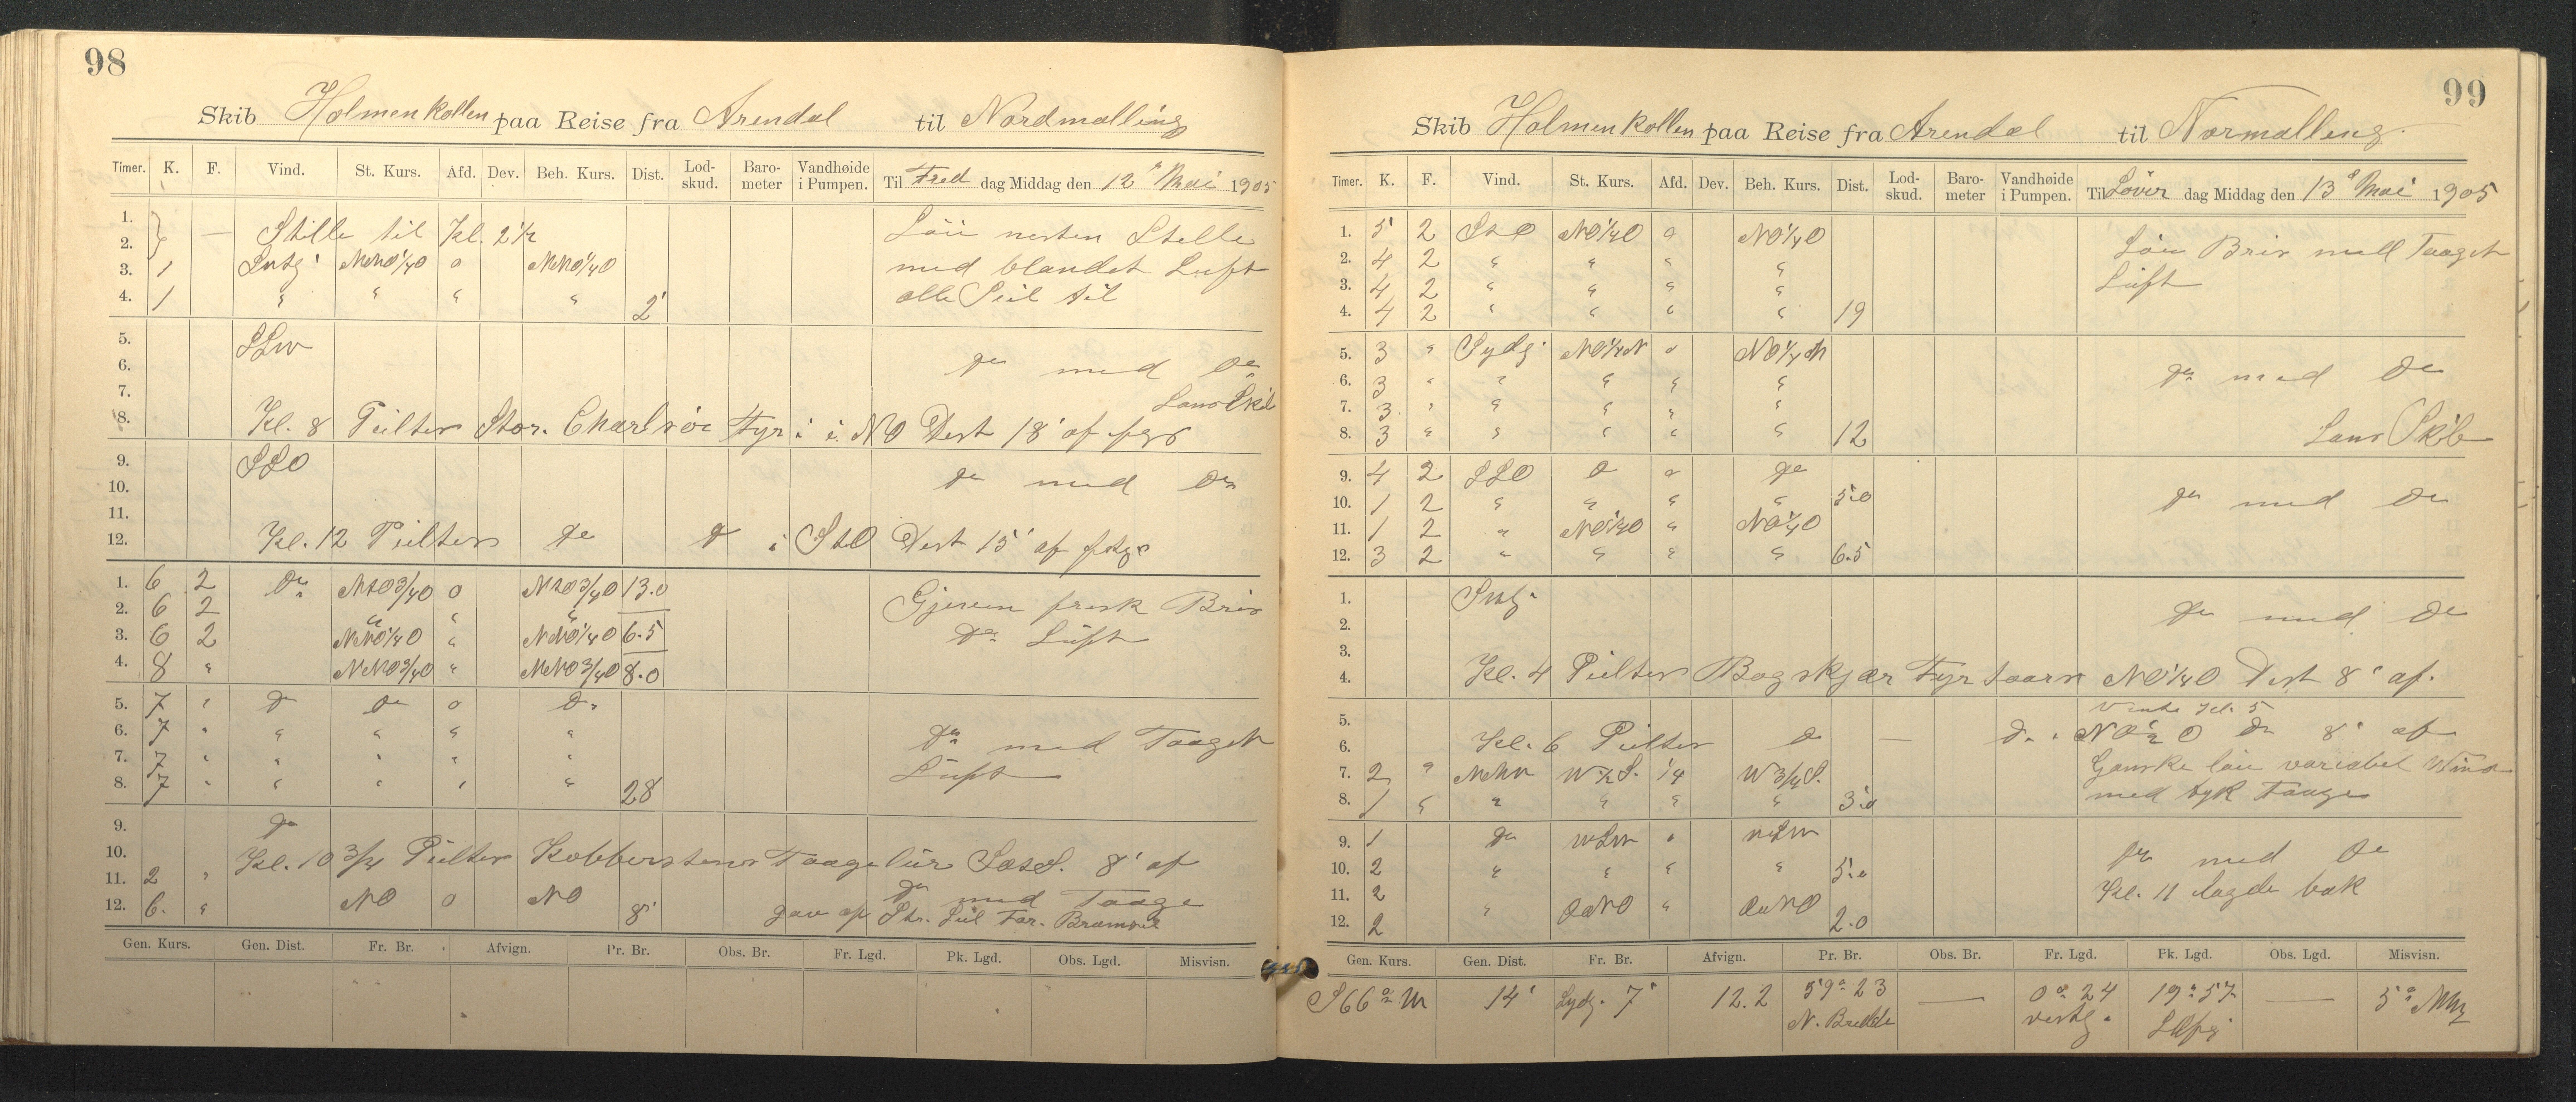 98
Skib Holmenkollen paa Reise fra Arendal til Nordmalling
Timer. K. F. Vind. St. Kurs. Afd. Dev. Beh. Kurs. Dist. Lod-skud. Baro-meter Vandhøide i Pumpen. Til Fred dag Middag den 12te Mai 1905
1. — Stille til Kl. 2½ Løi nesten Stille
2.
3. 1 NNO¼O 0 NNO¼O med blandet Luft
4. 1 " " " " 2' alle Seil til
5. SSW
6. do med do
7. Lans Skib
8. Kl. 8 Peiltes Stor. Fyr i NO Dist 18' af
9. SSO
10. do med do
11.
12. Kl. 12 Peiltes do do i StO Dist 15' af
1. 6 2 do NtO¾O 0 NtO¾O 13.0 Gjeven frisk Bris
2. 6 2 " " "
3. 6 2 NNO¼O " NNO¼O 6.5 do Luft
4. 8 " NNO¾O " NNO¾O 8.0
5. 7 " do do 0 do
6. 7 " " " " " do med Taaget
7. 7 " " " " " Luft
8. 7 " " " " " 28
9. do
10. Kl. 10¾ Peiltes Taagelur 8' af
11. 2 " do med Taage
12. 6. " NO 0 NO 8'
Gen. Kurs. Gen. Dist. Fr. Br. Afvign. Pr. Br. Obs. Br. Fr. Lgd. Pk. Lgd. Obs. Lgd. Misvisn.
99
Skib Holmenkollen paa Reise fra Arendal til Normalling.
Timer. K. F. Vind. St. Kurs. Afd. Dev. Beh. Kurs. Dist. Lod-skud. Baro-meter Vandhøide i Pumpen. Til Løver dag Middag den 13de Mai 1905
1. 5 2 StO NO¼O 0 NO¼O Løi Bris med Taaget
2. 4 2 " " " " Luft
3. 4 2 " " " "
4. 4 2 " " " " 19
5. 3 " Sydg. NO¼N 0 NO¼N
6. 3 " " " " " do med do
7. 3 " " " " "
8. 3 " " " " " 12 Lans Skib
9. 4 2 SSO do 0 do
10. 1 2 " " " " 5.0 do med do
11. 1 2 " NO¼O " NO¼O
12. 3 2 " " " " 6.5
1.
2. do med do
3.
4. Kl. 4 Peiltes Bogskjær Fyrtaarn NO¼O Dist 8' af.
5. Kl. 5
6. Kl. 6 Peiltes do — do 8' af
7. 2 " W½S. ¼ W¾S. Ganske løi variabel Wind
8. 1 " " " " " 3.0 med tyk Taage
9. 1 do WSW " WSW
10. 2 " " " " 5.0 do med do
11. 2 Kl. 11 lagde bak
12. 2 " ONO " ONO 2.0
Gen. Kurs. Gen. Dist. Fr. Br. Afvign. Pr. Br. Obs. Br. Fr. Lgd. Pk. Lgd. Obs. Lgd. Misvisn.
S 66° W 14' Sydg. 7' 12.2 59° 23 N. Bredde — 0° 24 vestg. 19° 57 — 5°